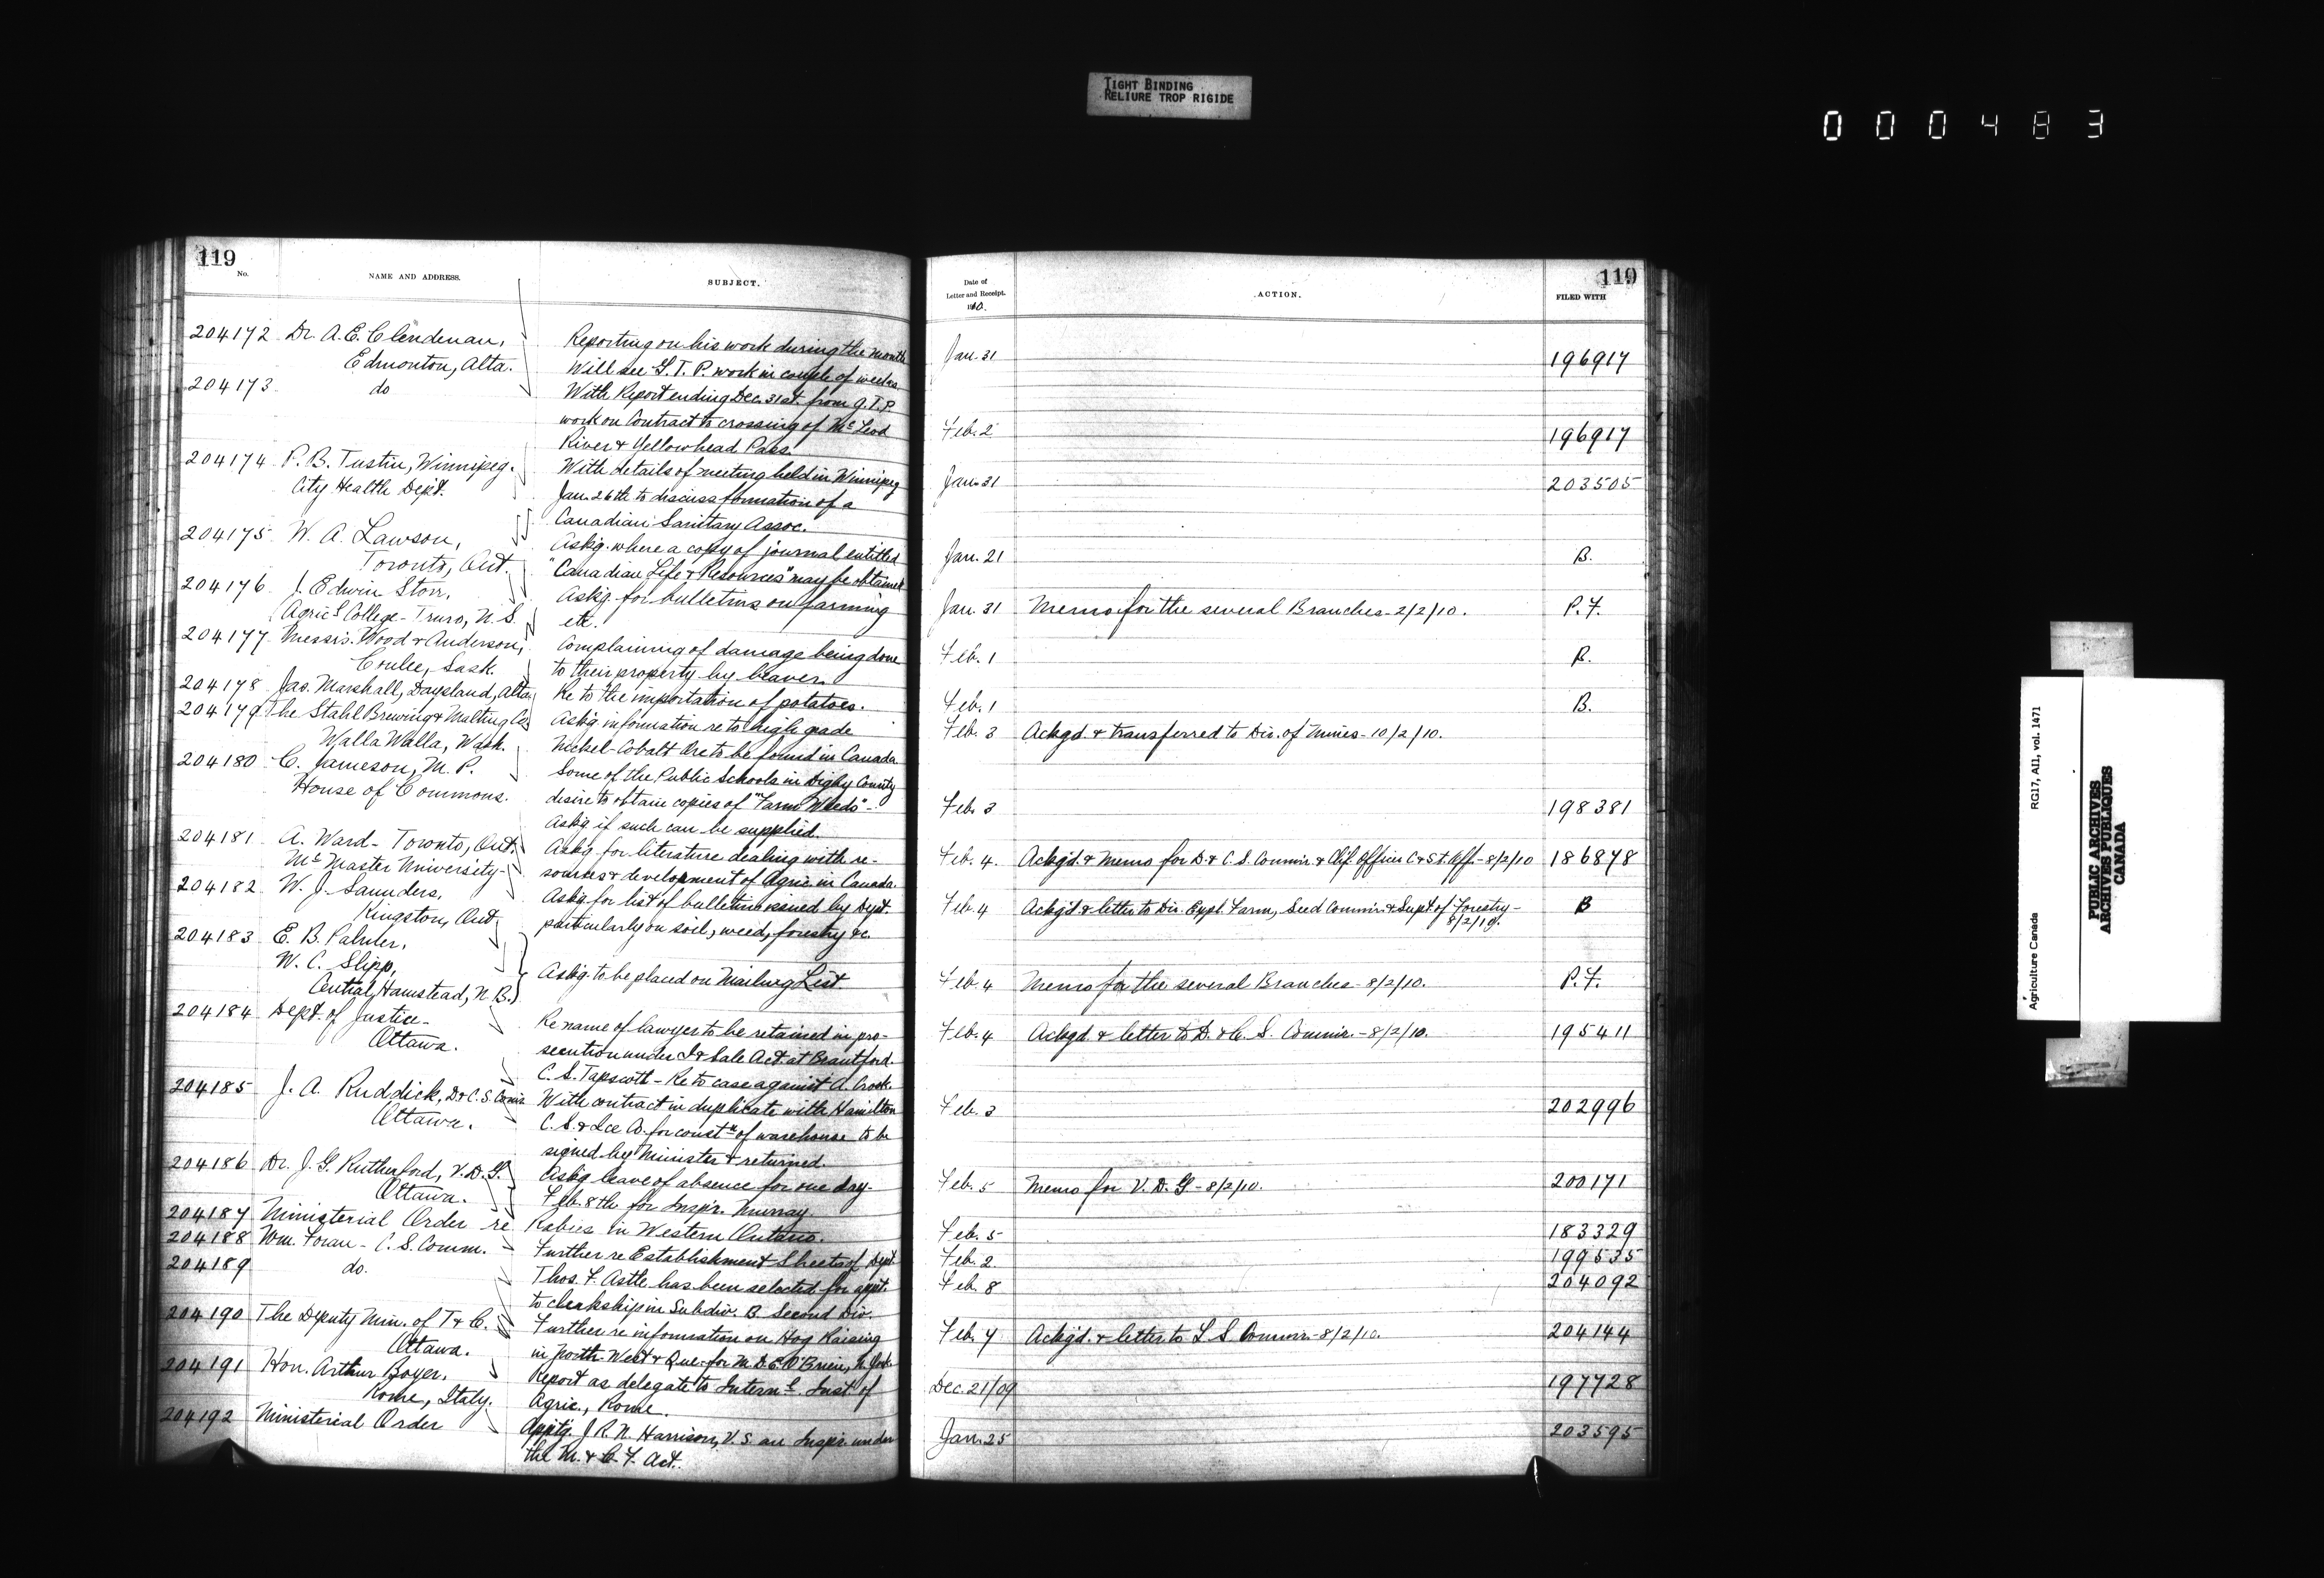 TIGHT BINDING
RELIURE TROP RIGIDE
000483
119
No.
NAME AND ADDRESS.
SUBJECT.
204172 Dr. A. E. Clendenan,
Edmonton, Alta.
Reporting on his work during the month
Will see G. T. P. work in couple of weeks.
204173 do
With Report ending Dec. 31st. from G. T. P
work on Contract to crossing of McLeod
River & Yellowhead Pass.
204174 P. B. Tustin, Winnipeg.
City Health Dept.
With details of meeting held in Winnipeg
Jan. 26th to discuss formation of a
Canadian Sanitary Assoc.
204175 W. A. Lawson,
Toronto, Ont.
Askg. where a copy of journal entitled
"Canadian Life & Resources" may be obtained
204176 J. Edwin Storr,
Agricl College - Truro, N. S.
Askg. for bulletins on farming
etc.
204177 Messrs. Wood & Anderson,
Coulee, Sask.
Complaining of damage being done
to their property by beaver.
204178 Jas. Marshall, Daysland, Alta.
Re to the importation of potatoes.
204179 The Stahl Brewing & Malting Co.
Walla Walla, Wash.
Askg. information re to high grade
Nickel-Cobalt Ore to be found in Canada.
204180 C. Jameson, M. P.
House of Commons.
Some of the Public Schools in Digby County
desire to obtain copies of "Farm Weeds" -
Askg if such can be supplied.
204181 A. Ward - Toronto, Ont.
McMaster University -
Askg for literature dealing with re-
sources & development of Agric. in Canada.
204182 W. J. Saunders,
Kingston, Ont.
Askg for list of bulletins issued by Dept.
particularly on soil, weed, forestry &c.
204183 E. B. Palmer,
W. C. Slipp,
Central Hamstead, N. B.
Askg. to be placed on Mailing List.
204184 Dept. of Justice -
Ottawa.
Re name of lawyer to be retained in pro-
secution under I & Sale Act at Brantford.
C. S. Tapscott - Re to case against A. Crook.
204185 J. A. Ruddick, D & C. S. Comr.
Ottawa.
With contract in duplicate with Hamilton
C. S. & Ice Co. for constn of warehouse to be
signed by Minister & returned.
204186 Dr. J. G. Rutherford, V. D. G.
Ottawa.
Askg leave of absence for one day -
Feb. 8th for Inspr. Murray.
204187 Ministerial Order re Rabies in Western Ontario.
204188 Wm. Foran - C. S. Comm. - Further re Establishment Sheets of Dept
204189 do.
Thos. F. Astle has been selected for appt.
to clerkship in Subdiv. B. Second Div.
204190 The Deputy Min. of T & C.
Ottawa.
Further re information on Hog Raising
in North-West & Que. for M. D. C. O'Brien, N. York
204191 Hon. Arthur Boyer,
Rome, Italy.
Report as delegate to Internl. Inst of
Agric., Rome.
204192 Ministerial Order
Apptg. J. R. N. Harrison, V. S. an Inspr. under
the M. & C. F. Act.
119
Date of
Letter and Receipt.
1910.
ACTION.
FILED WITH
Jan. 31 196917
Feb. 2 196917
Jan. 31 203505
Jan. 21 B.
Jan. 31 Memo for the several Branches - 2/2/10. P. F.
Feb. 1 B.
Feb. 1 B.
Feb. 3 Ackgd. & transferred to Dir. of Mines - 10/2/10.
Feb. 3 198381
Feb. 4. Ackg'd. & Memo for D. & C. S. Commr. & Chf. Officer C & S. t. Off. - 8/2/10 186878
Feb. 4 Ackg'd. & letter to Dir. Expl. Farm, Seed Commr. & Supt. of Forestry -
8/2/10. B
Feb. 4 Memo for the several Branches - 8/2/10. P. F.
Feb. 4 Ackgd. & letter to D. & C. S. Commr. - 8/2/10. 195411
Feb. 3 202996
Feb. 5 Memo for V. D. G - 8/2/10. 200171
Feb. 5 183329
Feb. 2 199535
Feb. 8 204092
Feb. 7 Ackg'd. & letter to L S Commr. - 8/2/10. 204144
Dec. 21/09 197728
Jan. 25 203595
Agriculture Canada RG17, AII, vol. 1471
PUBLIC ARCHIVES
ARCHIVES PUBLIQUES
CANADA